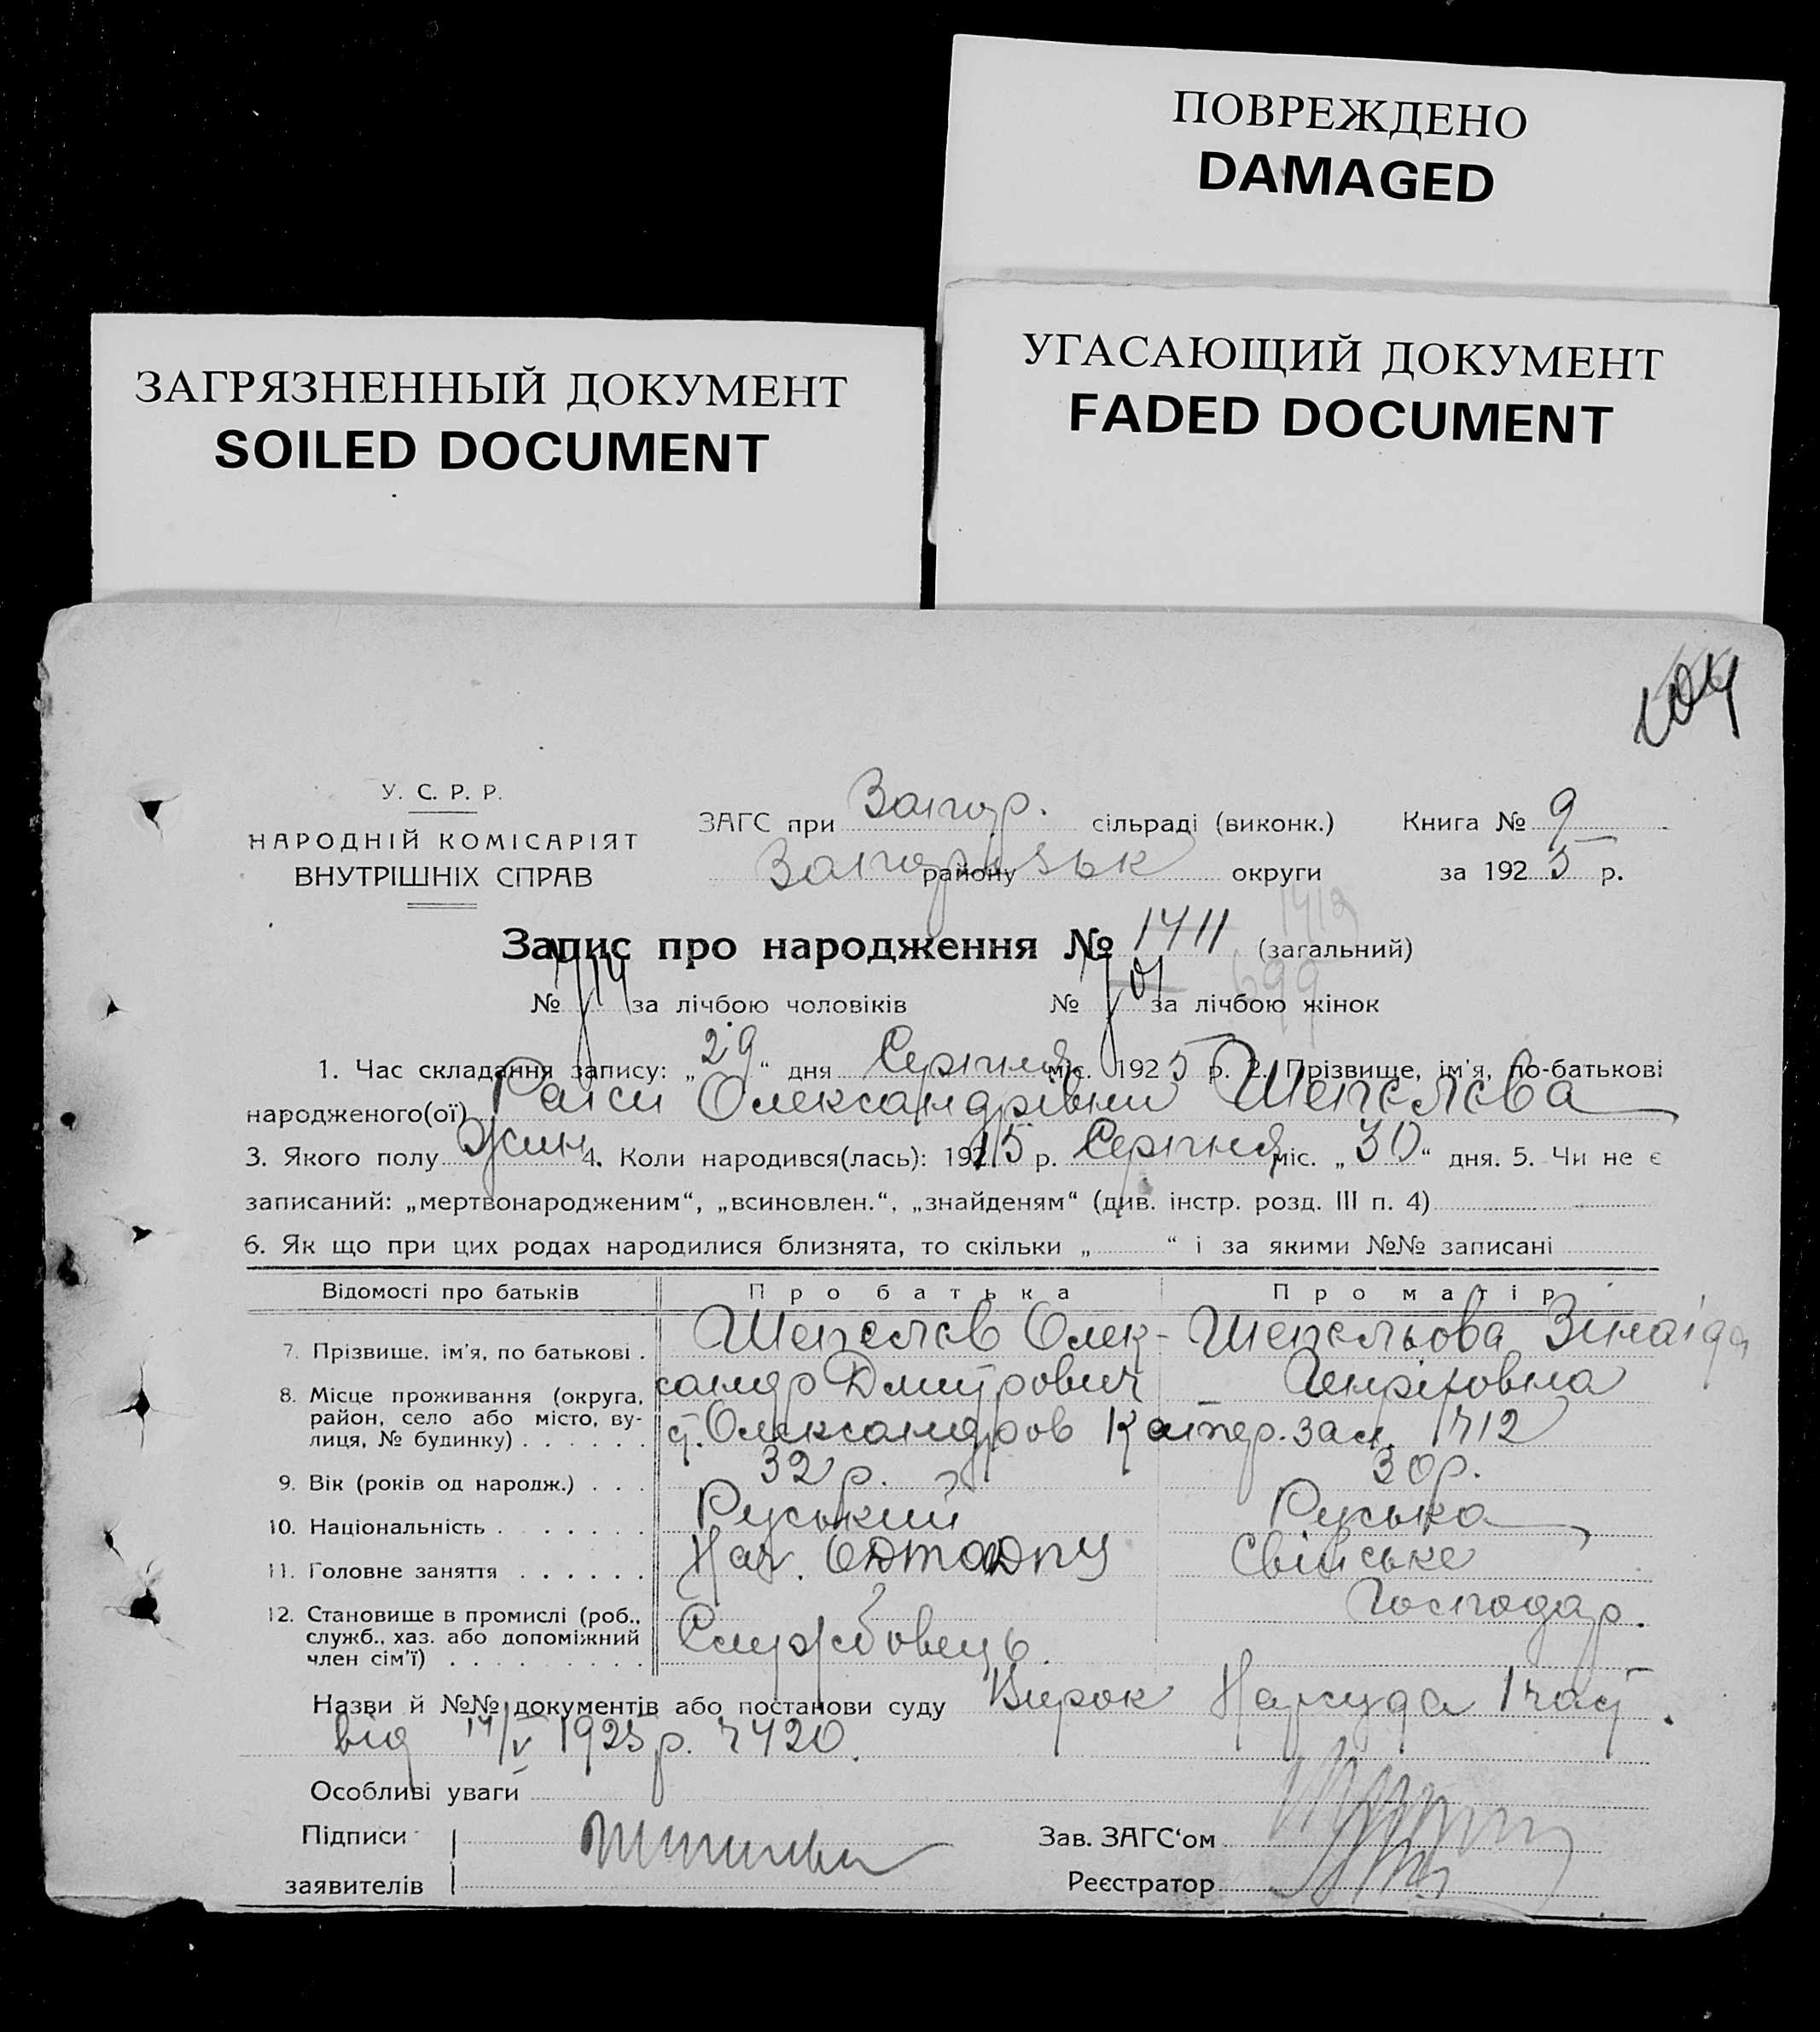 ПОВРЕЖДЕНО
DAMAGED
УГАСАЮЩИЙ ДОКУМЕНТ
FADED DOCUMENT
ЗАГРЯЗНЕННЫЙ ДОКУМЕНТ
SOILED DOCUMENT
104
У. С. Р. Р.
НАРОДНІЙ КОМІСАРІЯТ
ВНУТРІШНІХ СПРАВ
ЗАГС при Запор. сільраді (виконк.) Книга № 9
району Запорізьк округи за 1925 р.
1412
Запис про народження № 1411 (загальний)
699
№ за лічбою чоловіків № за лічбою жінок
1. Час складання запису: „29“ дня Серпня міс. 1925 р. 2. Прізвище, ім'я, по-батькові
народженого(ої) Раїси Олександрівни Шепєлєва
3. Якого полу жин 4. Коли народився(лась): 1915 р. Серпня міс. „30“ дня. 5. Чи не є
записаний: „мертвонародженим“, „всиновлен.“, „знайденям“ (див. інстр. розд. III п. 4)
6. Як що при цих родах народилися близнята, то скільки „ “ і за якими №№ записані
Відомості про батьків Про батька Про матір
7. Прізвище, ім'я, по батькові . Шепєлєв Олек- Шепєльова Зинаїда
сандр Дмитрович Генріховна
8. Місце проживання (округа, район, село або місто, ву-
лиця, № будинку) . . . . . . Олександров 1712
9. Вік (років од народж.) . . . 32 р. 30 р.
10. Національність . . . . . . . Руський Руська
11. Головне заняття . . . . . . Нач. Свійське
Господар.
12. Становище в промислі (роб., служб., хаз. або допоміжний
член сім'ї) . . . . . . . . . Службовець.
Назви й №№ документів або постанови суду Вирок Нарсуда
від 14/V 1925 р. 7420.
Особливі уваги
Підписи
заявителів
Зав. ЗАГС'ом
Реєстратор